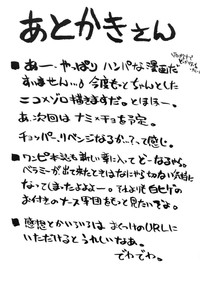 あとがきえん
■あー、やっぱり ハンパな漫画だ
すいません…。今度もっとちゃんとした
ニコメゾロ描きますだ。とほほー。
あ、次回は ナミ×チョを予定。
チョッパー、リベンジなるか…？って感じ。
■ワンピ本誌も新しい章に入って どーなるやら。
ベラミーが出て来たときはなにやら切ない気持に
なってしまったよよよー。てゆーより白ひげの
お付きのナース軍団をもっと見たいでよ。
■感想とかいろいろは おくづけのURLに
いただけるとうれしいなあ。
でわでわ。